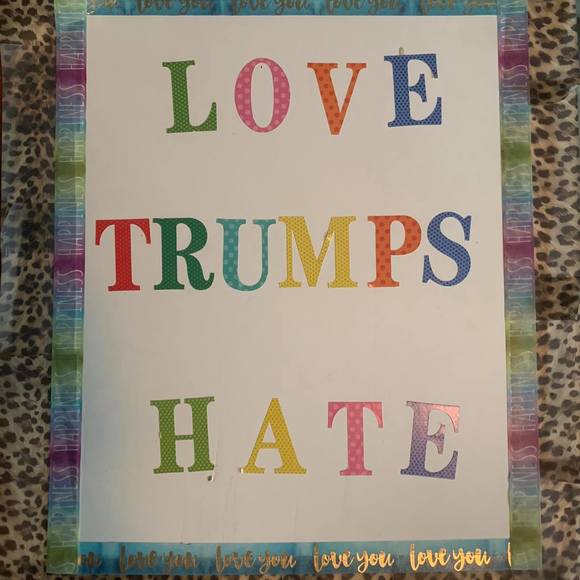 love you love you love you love you
LOVE
TRUMPS
HATE
love you love you love you love you
HAPPINESS HAPPINESS HAPPINESS
HAPPINESS HAPPINESS HAPPINESS